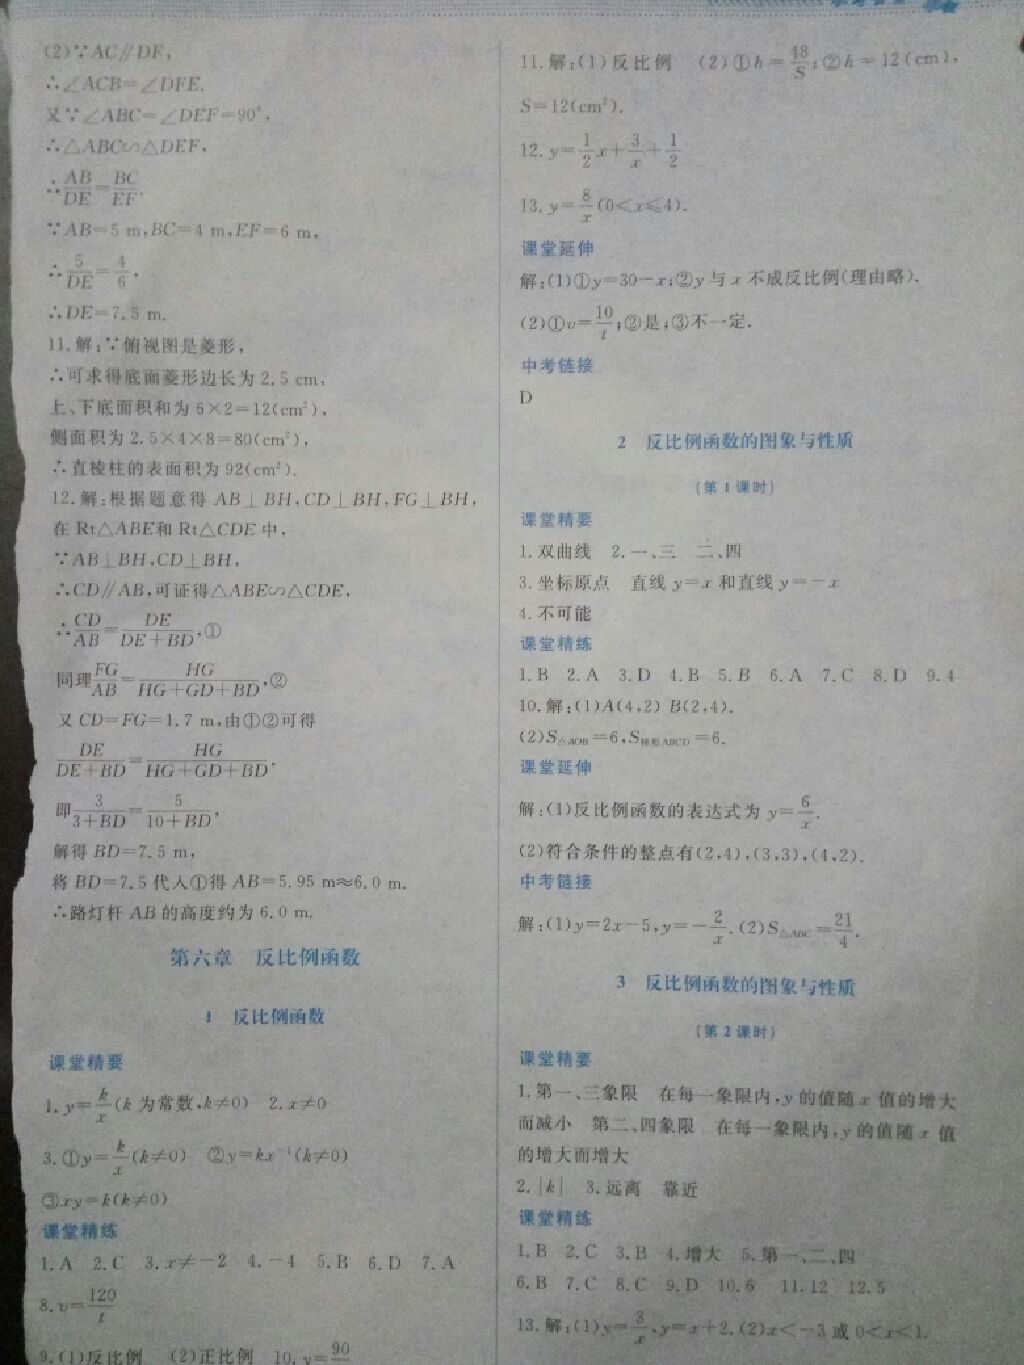 (2)∵AC∥DF,
∴∠ACB=∠DFE.
又∵∠ABC=∠DEF=90°,
∴△ABC∽△DEF,
∴AB/DE=BC/EF.
∵AB=5 m,BC=4 m,EF=6 m,
∴5/DE=4/6,
∴DE=7.5 m.
11.解:∵俯视图是菱形,
∴可求得底面菱形边长为 2.5 cm,
上、下底面积和为 6×2=12(cm²),
侧面积为 2.5×4×8=80(cm²),
∴直棱柱的表面积为 92(cm²).
12.解:根据题意得 AB⊥BH,CD⊥BH,FG⊥BH,
在 Rt△ABE和 Rt△CDE 中,
∵AB⊥BH,CD⊥BH,
∴CD∥AB,可证得△ABE∽△CDE,
∴CD/AB=DE/(DE+BD),①
同理FG/AB=HG/(HG+GD+BD),②
又 CD=FG=1.7 m,由①②可得
DE/(DE+BD)=HG/(HG+GD+BD),
即3/(3+BD)=5/(10+BD),
解得 BD=7.5 m,
将 BD=7.5 代入①得 AB=5.95 m≈6.0 m.
∴路灯杆 AB 的高度约为 6.0 m.
第六章 反比例函数
1 反比例函数
课堂精要
1.y=k/x(k 为常数,k≠0) 2.x≠0
3.①y=k/x(k≠0) ②y=kx⁻¹(k≠0)
③xy=k(k≠0)
课堂精练
1.A 2.C 3.x≠-2 4.-4 5.B 6.D 7.A
8.v=120/t
9.(1)反比例 (2)正比例 10.y=90
11.解:(1)反比例 (2)①h=48/S;②h=12(cm),
S=12(cm²).
12.y=1/2x+3/x+1/2
13.y=8/x(0<x≤4).
课堂延伸
解:(1)①y=30-x;②y 与 x 不成反比例(理由略).
(2)①v=10/t;②是;③不一定.
中考链接
D
2 反比例函数的图象与性质
(第 1 课时)
课堂精要
1.双曲线 2.一、三 二、四
3.坐标原点 直线 y=x 和直线 y=-x
4.不可能
课堂精练
1.B 2.A 3.D 4.B 5.B 6.A 7.C 8.D 9.4
10.解:(1)A(4,2) B(2,4).
(2)S△AOB=6,S梯形ABCD=6.
课堂延伸
解:(1)反比例函数的表达式为 y=6/x.
(2)符合条件的整点有(2,4),(3,3),(4,2).
中考链接
解:(1)y=2x-5,y=-2/x.(2)S△ABC=21/4.
3 反比例函数的图象与性质
(第 2 课时)
课堂精要
1.第一、三象限 在每一象限内,y 的值随 x 值的增大
而减小 第二、四象限 在每一象限内,y 的值随 x 值
的增大而增大
2.|k| 3.远离 靠近
课堂精练
1.B 2.C 3.B 4.增大 5.第一、二、四
6.B 7.C 8.C 9.D 10.6 11.12 12.5
13.解:(1)y=3/x,y=x+2.(2)x<-3 或 0<x<1.